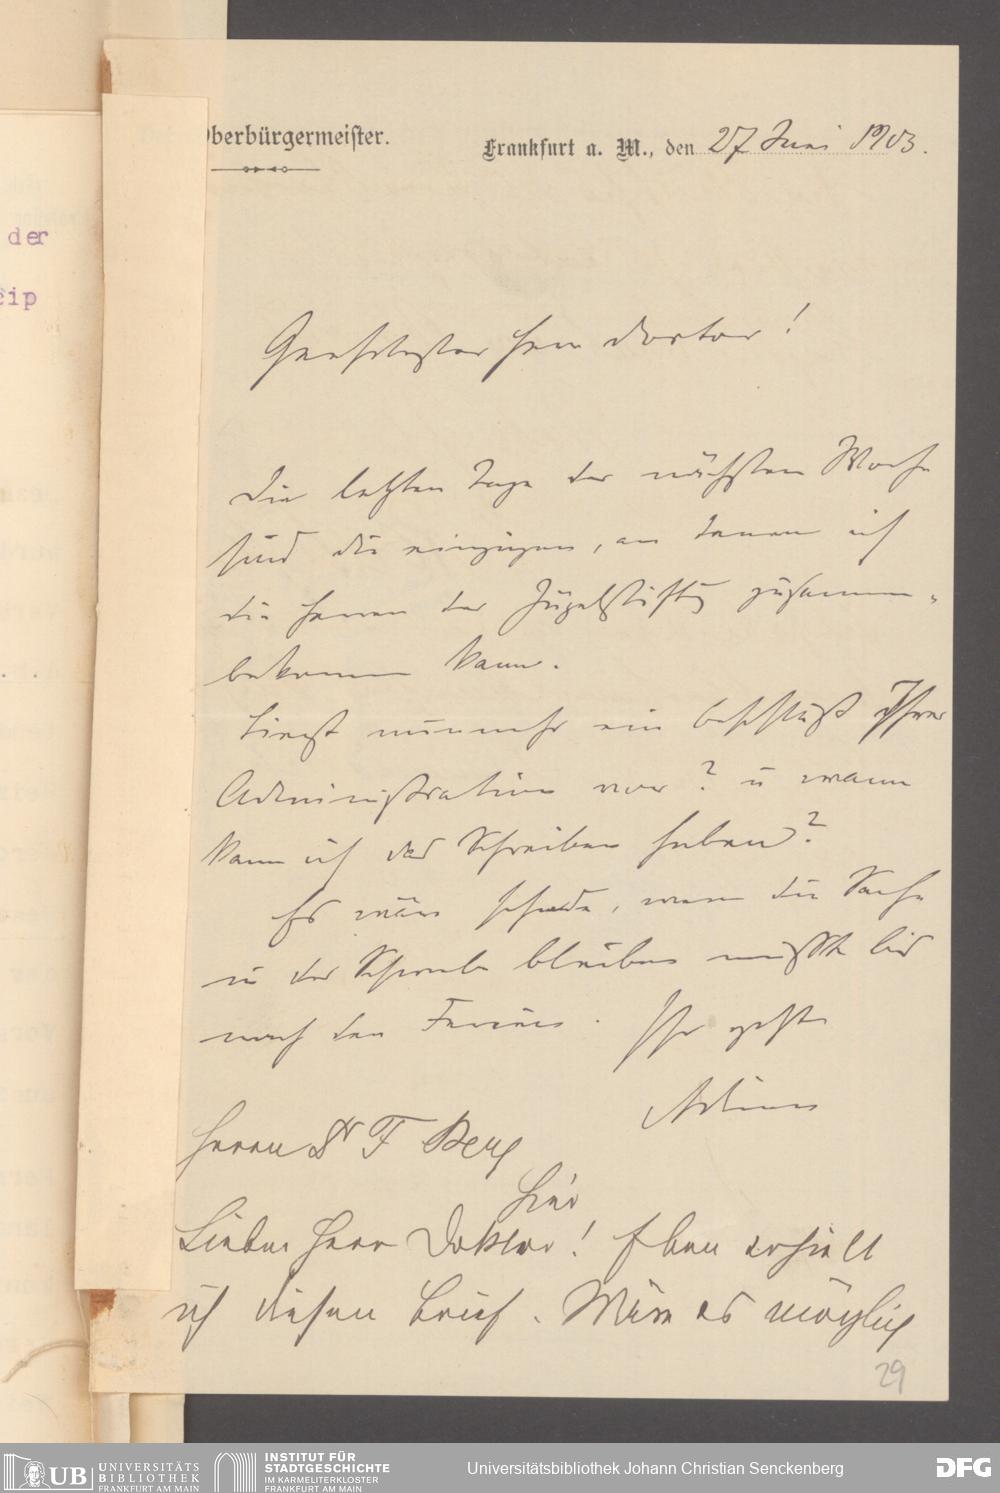 der
eip
Oberbürgermeister.
Frankfurt a. M., den 27 Juni 1903.
Geehrtester Herr Doctor!
Die letzten Tage der nächsten Woche
sind die einzigen, an denen ich
die Herren der Jügelstiftg zusammen-
bekommen kann.
Liegt nunmehr ein Beschluß Ihrer
Administration vor? u wann
kann ich das Schreiben haben?
Es wäre schade, wenn die Sache
in der Schwebe bleiben müßte bis
nach den Ferien. Ihr ergbst
Adickes
Herrn Dr F Berg
hier
Lieber Herr Doktor! Eben erhielt
ich diesen Brief. Wäre es möglich
29
UB UNIVERSITÄTS
BIBLIOTHEK
FRANKFURT AM MAIN
INSTITUT FÜR
STADTGESCHICHTE
IM KARMELITERKLOSTER
FRANKFURT AM MAIN
Universitätsbibliothek Johann Christian Senckenberg
DFG